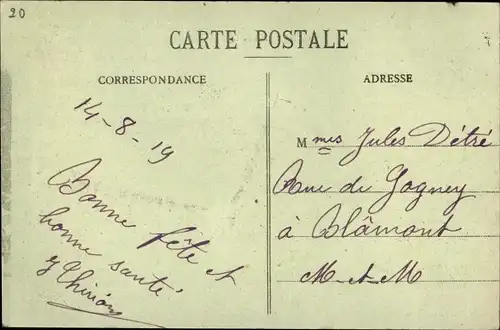 20
CARTE POSTALE
CORRESPONDANCE
14-8-19
Bonne fête et
bonne santé
J Thirion
ADRESSE
Mmes Jules Détré
Rue de Gogney
à Blâmont
M-et-M